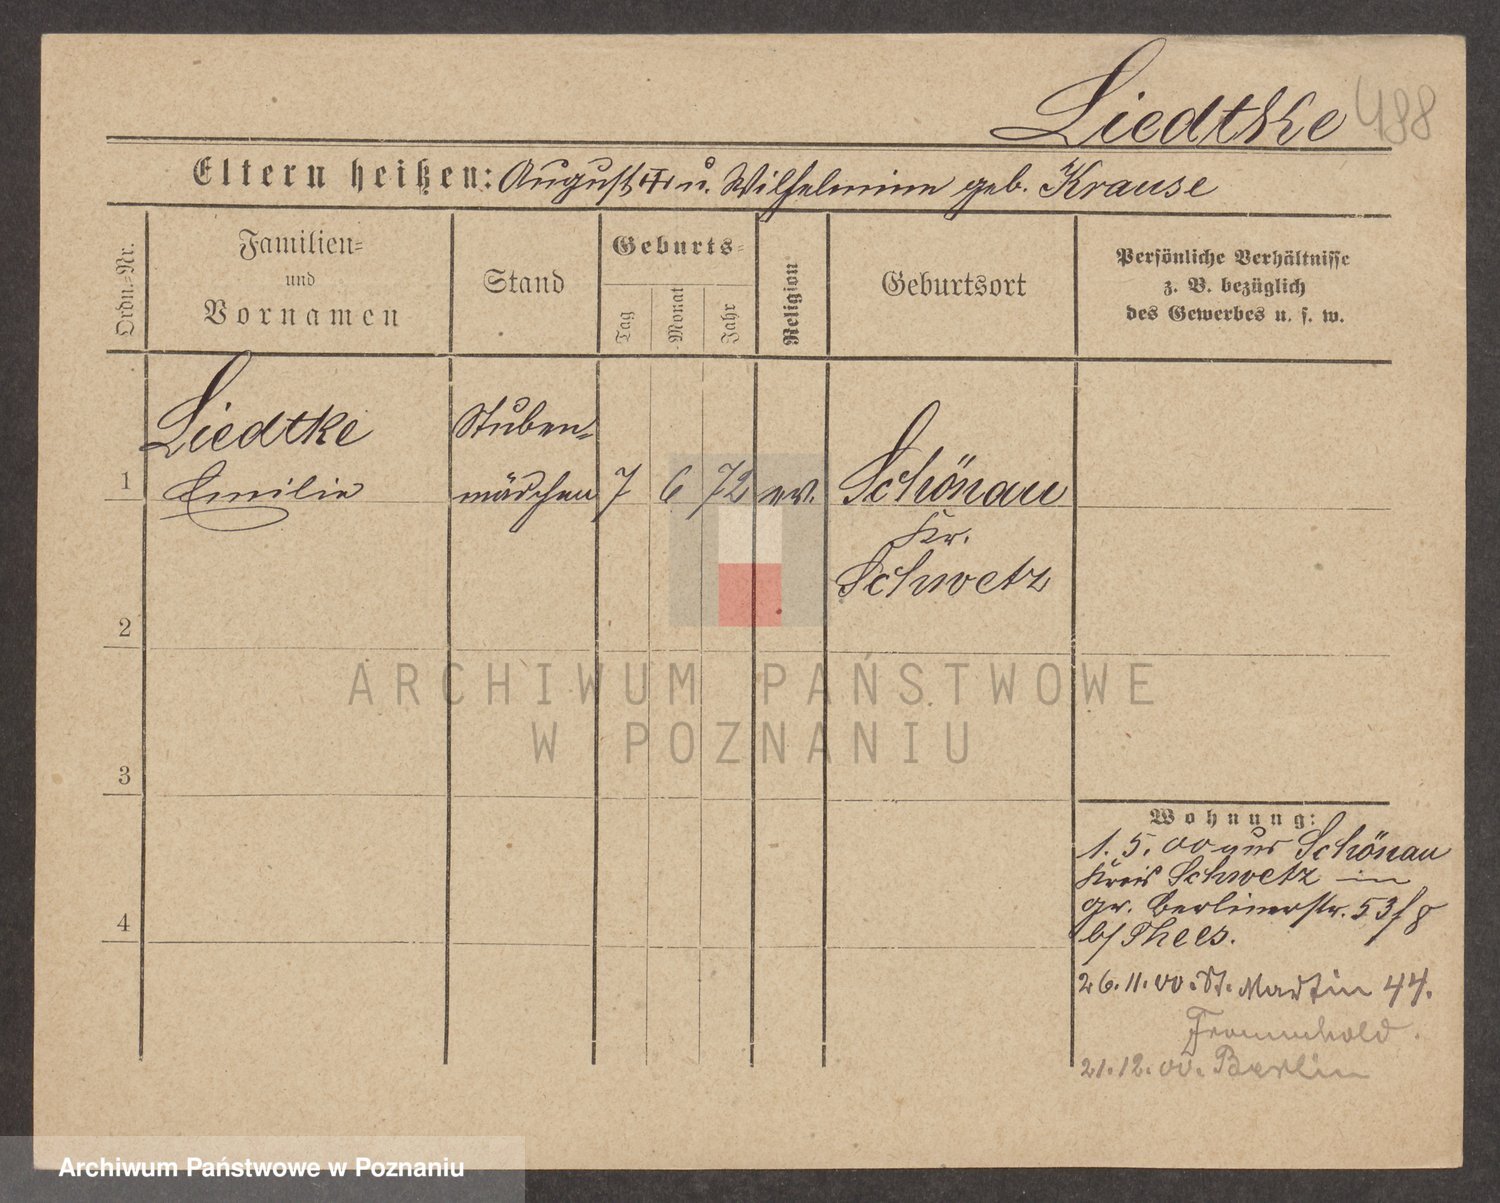 Liedtke 488
Eltern heißen: August ✝ u. Wilhelmine geb. Krause
Ordn.-Nr.
Familien-
und
Vornamen
Stand
Geburts-
Tag
Monat
Jahr
Religion
Geburtsort
Persönliche Verhältnisse
z. B. bezüglich
des Gewerbes u. s. w.
Liedtke Stuben-
1 Emilie mädchen 7 6 72 ev. Schönau
Kr.
Schwetz
2
ARCHIWUM PAŃSTWOWE
W POZNANIU
3
Wohnung:
1. 5. 00 aus Schönau
Kreis Schwetz in
gr. Berlinerstr. 53
4
b/ Thees.
26. 11. 00. St. Martin 44.
Frommhold.
21. 12. 00. Berlin
Archiwum Państwowe w Poznaniu